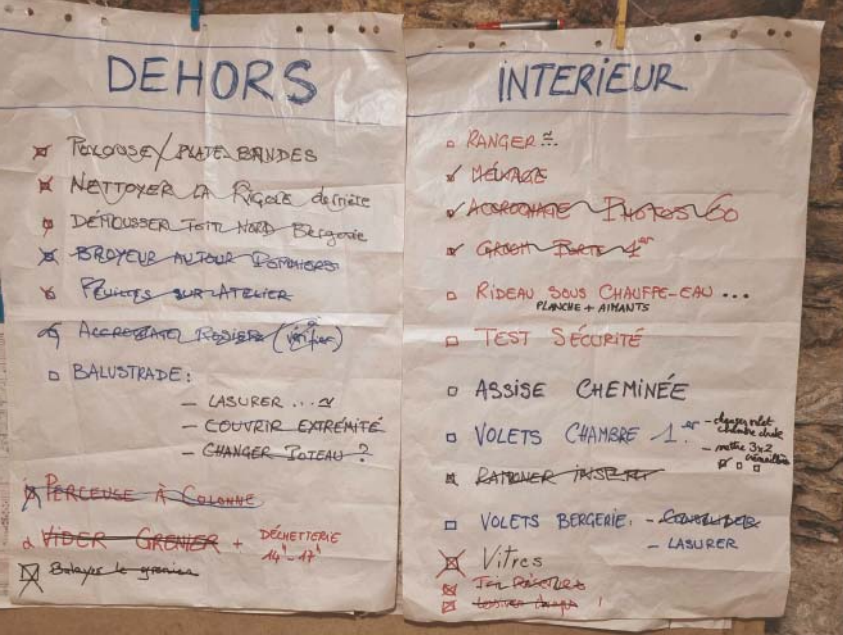 DEHORS
PELOUSE / PLATE BANDES
NETTOYER LA RIGOLE derrière
DÉMOUSSER TOIT NORD Bergerie
BROYEUR AUTOUR POMMIERS
FEUILLES SUR ATELIER
ACCROCHAGE ROSIERS (vérifier)
BALUSTRADE :
- LASURER ...
- COUVRIR EXTRÉMITÉ
- CHANGER POTEAU ?
PERCEUSE À COLONNE
VIDER GRENIER + DÉCHETTERIE
14h-17h
Balayer le grenier
INTERIEUR
RANGER
MÉNAGE
ACCROCHAGE PHOTOS 60
GROOM PORTE 1er
RIDEAU SOUS CHAUFFE-EAU ...
PLANCHE + AIMANTS
TEST SÉCURITÉ
ASSISE CHEMINÉE
VOLETS CHAMBRE 1er
- changer volet
chambre droite
- mettre 3x2
RAMONER INSERT
VOLETS BERGERIE : - CONSOLIDER
- LASURER
Vitres